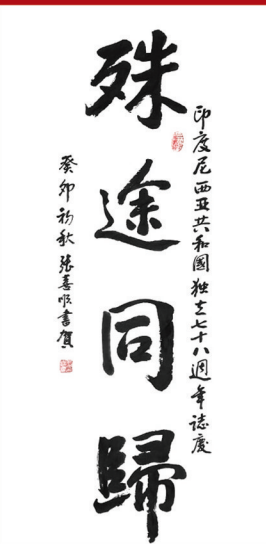 印度尼西亚共和國独立七十八週年誌慶
殊途同歸
癸卯初秋 張喜順書賀